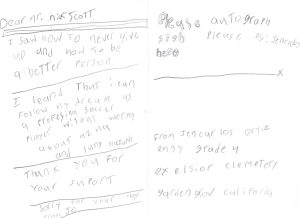 Dear Mr. Nick Scott
I saw how to never give
up and how to be
a better person
I leand that i can
Follow my dream as
a profesinal soccer
player without worring
about
and lung
Thank you For
your suport
Sorry For your lung
From JO
Please autograph
Please Ps: Jencarlos
here
x
From Jencarlos ortiz
engy grade 4
excelsior elemetery
garden grov californa